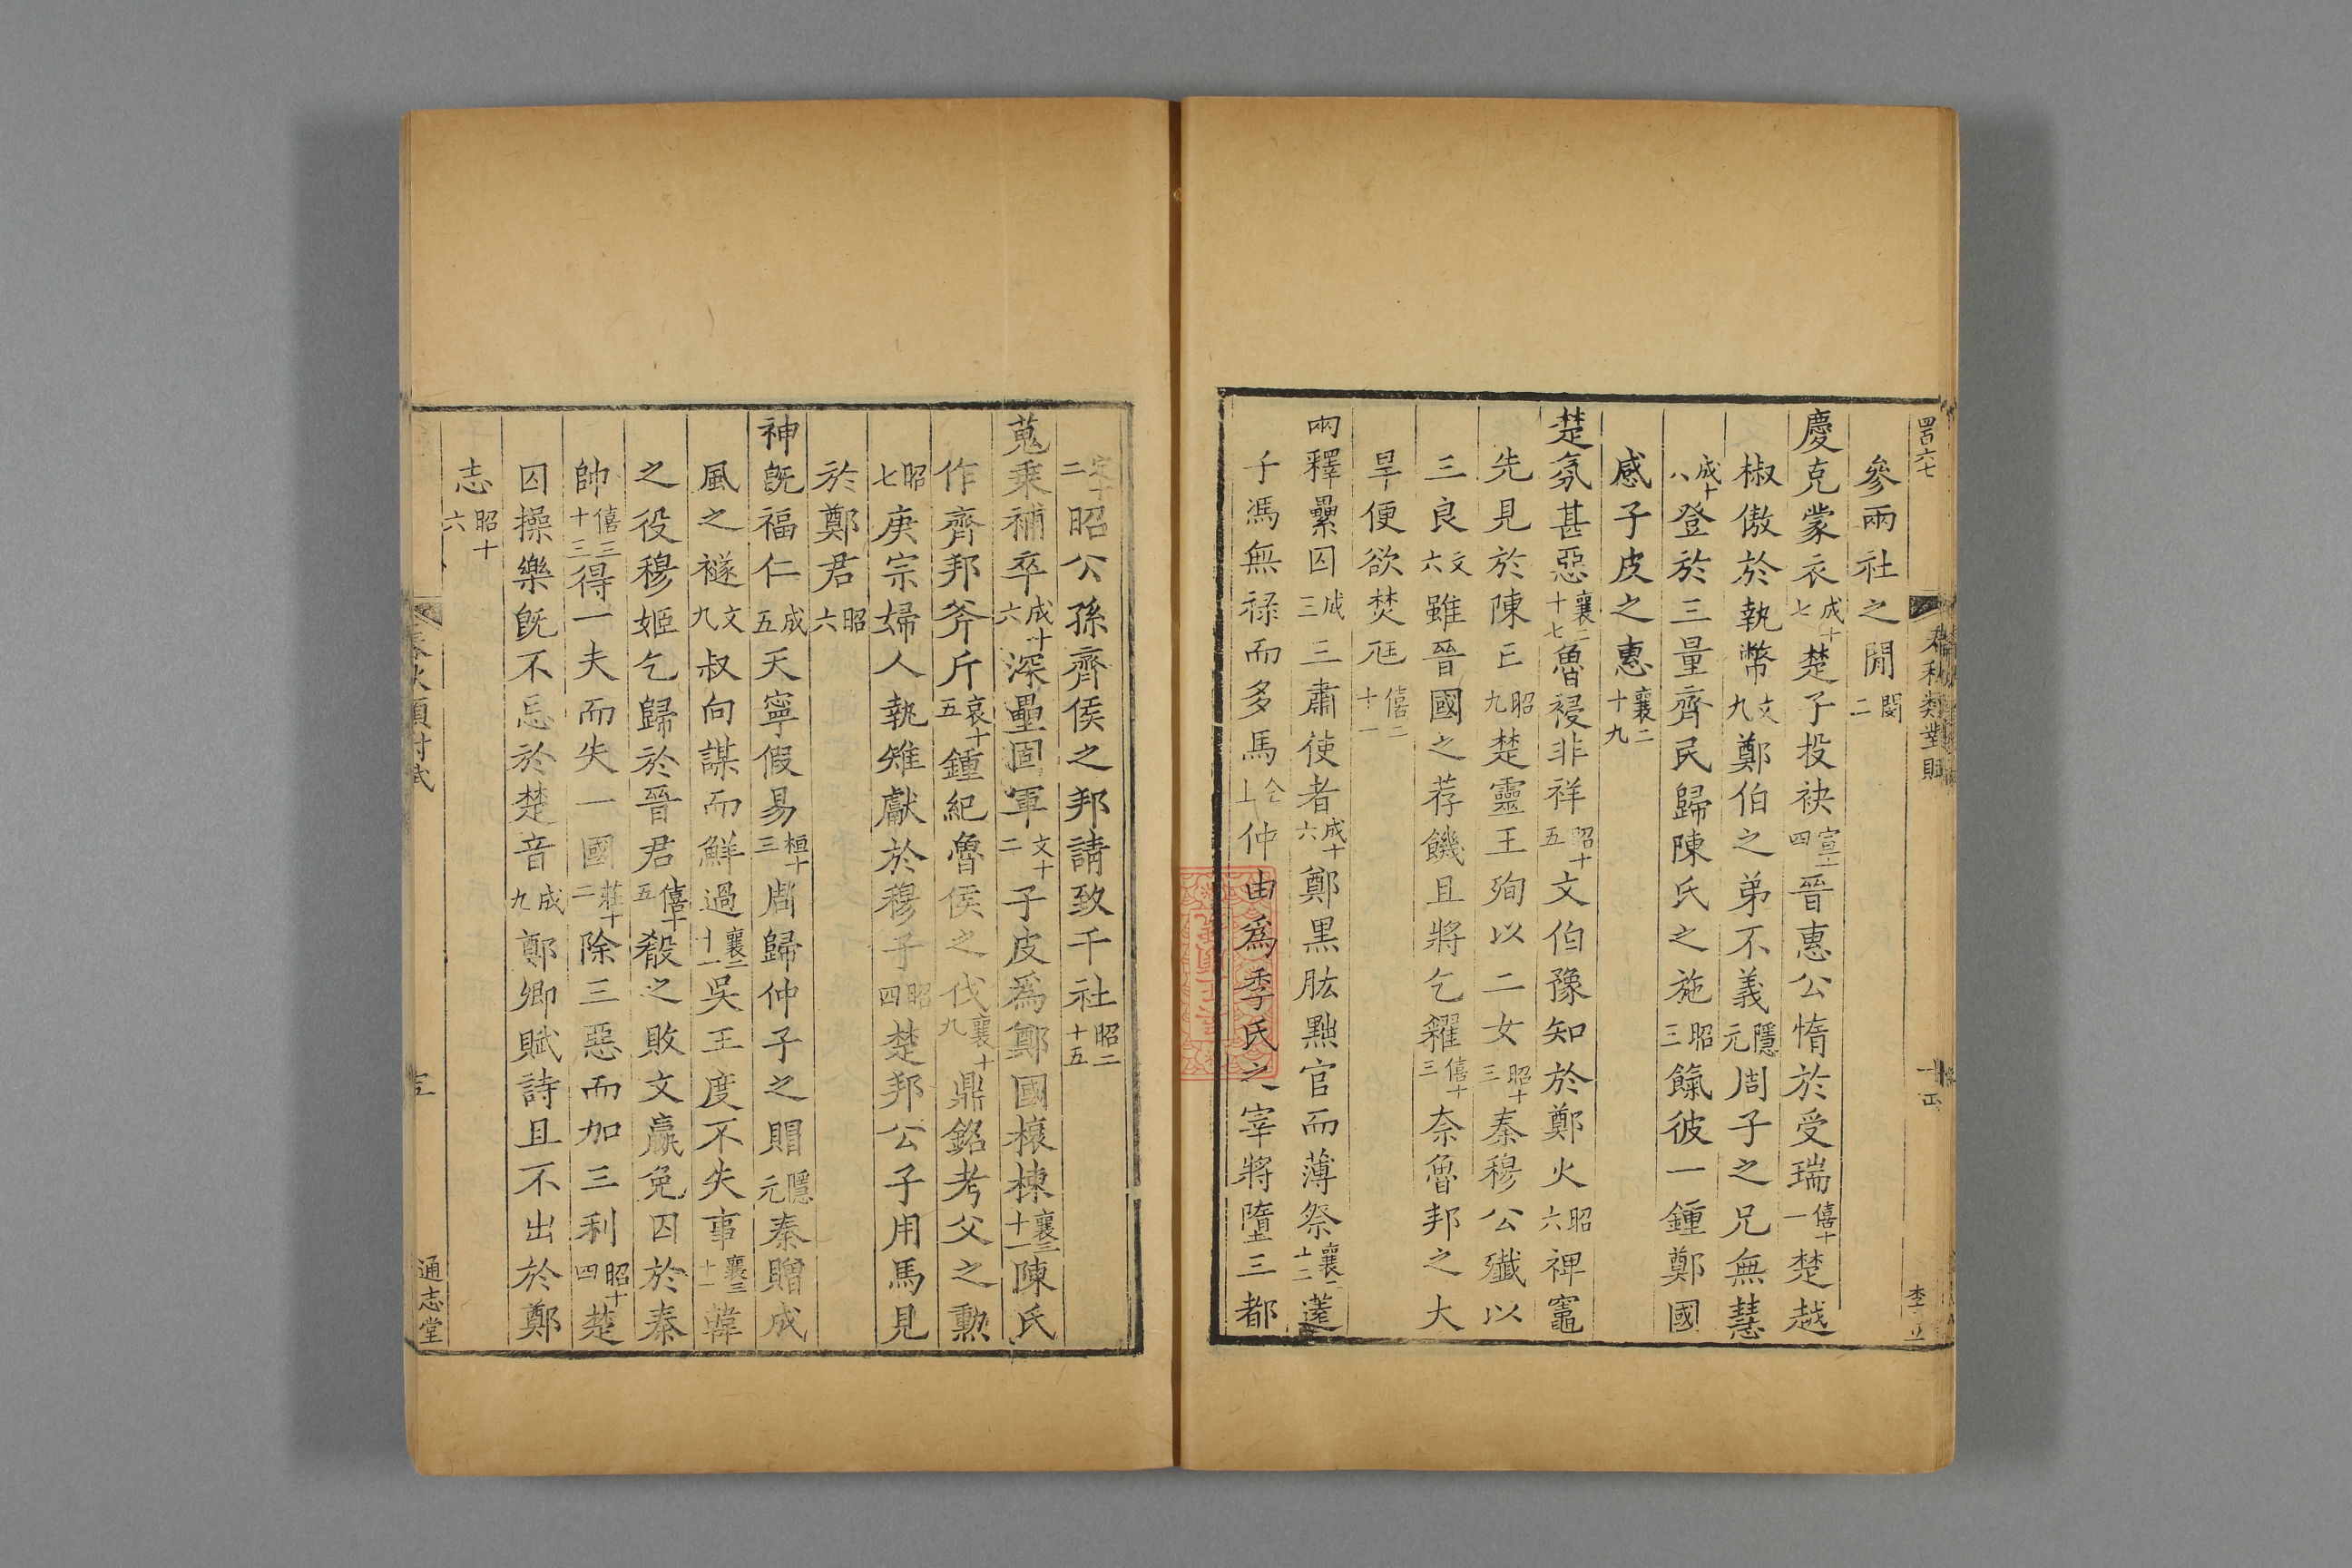 四百六七
春秋類對賦
十四
參兩社之閒閔二
慶克蒙衣成十七楚子投袂宣十四晉惠公惰於受瑞僖十一楚越
椒傲於執幣文九鄭伯之弟不義隱元周子之兄無慧
成十八登於三量齊民歸陳氏之施昭三餼彼一鍾鄭國
感子皮之惠襄二十九
楚氛甚惡襄二十七魯祲非祥昭十五文伯豫知於鄭火昭六裨竈
先見於陳亡昭九楚靈王殉以二女昭十三秦穆公殲以
三良文六雖晉國之荐饑且將乞糴僖十三奈魯邦之大
旱便欲焚尫僖二十一
兩釋纍囚成三三肅使者成十六鄭黑肱黜官而薄祭襄二十二薳
子馮無祿而多馬仝上仲由爲季氏之宰將隳三都
定十二昭公孫齊侯之邦請致千社昭二十五
蒐乘補卒成十六深壘固軍文十二子皮爲鄭國榱棟襄三十一陳氏
作齊邦斧斤哀十五鍾紀魯侯之伐襄十九鼎銘考父之勲
昭七庚宗婦人執雉獻於穆子昭四楚邦公子用馬見
於鄭君昭六
神旣福仁成五天寧假易桓十三賵歸仲子之賵隱元秦贈成
風之襚文九叔向謀而鮮過襄二十一吳王度不失事襄三十一韓
之役穆姬乞歸於晉君僖十五殽之敗文嬴免囚於秦
帥僖三十三得一夫而失一國莊十二除三惡而加三利昭十四楚
囚操樂旣不忘於楚音成九鄭卿賦詩且不出於鄭
志昭十六
春秋類對賦
通志堂